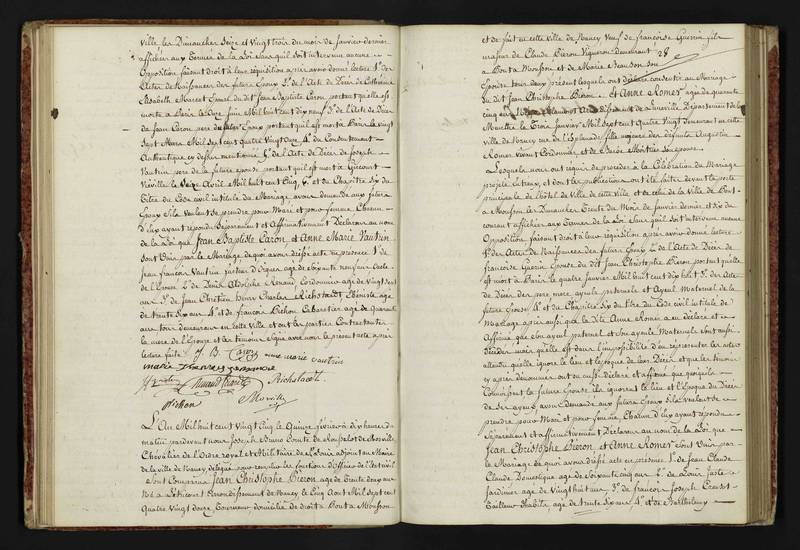 ville les Dimanches Seize et Vingt trois du mois de Janvier dernier
afficher aux termes de la Loi sans qu'il soit intervenu aucune
Opposition faisant droit à leur réquisition après avoir donné lecture 1.º des
Actes de Naissances des futurs Epoux 2.º de l'Acte de Décès de Catherine
Elisabeth Marest du dit Jean Baptiste Caron portant qu'elle est
morte à Paris le Juin Mil huit cent dix neuf 3.º de l'Acte de Décès
de Jean Caron pere du futur Epoux portant qu'il est mort à Paris le vingt
sept Mars Mil sept cent quatre Vingt 4.º du Consentement
Authentique cy dessus mentionné 5.º de l'Acte de Décès de Joseph
Vautrin pere de la future épouse portant qu'il est mort à
Néville le Avril Mil huit cent Cinq, 6.º et du Chapitre Six du
Titre du Code civil intitulé du Mariage avons demandé aux futurs
Epoux s'ils veulent se prendre pour Mari et pour femme Chacun
D'eux ayant répondu Séparément et Affirmativement Déclarons au nom
de la Loi que Jean Baptiste Caron et Anne Marie Vautrin
sont Unis par le Mariage de quoi avons dressé acte en presence 1.º de
Jean françois Vautrin age de soixante neuf ans
de l'Epouse 2.º de Denis Adolphe Renaud Cordonnier age de Vingt sept
ans 3.º de Jean Chrétien Henry Charles Richstaedt Ebéniste age
de trente six ans 4.º et de francois Pichon Cabaretier age de Quarante
ans tous demeurant en cette Ville et ont les parties Contractantes
la mere de l'Epouse et les temoins Signé avec nous le present acte après
lecture faite J. B. Caron anne marie vautrin
marie
Renaud Richstaedt
Pichon
L'An Mil huit cent Vingt Cinq le Quinze février à dix heures du
matin pardevant nous Joseph Bruno Comte de
Chevalier de l'Ordre royal et Militaire de S. Louis adjoint au Maire
de la ville de Nancy, délégué pour remplir les fonctions d'Officier de l'état civil
sont Comparus Jean Christophe Bieron age de Trente deux ans
Né à Arrondissement de Nancy le Cinq Août Mil sept cent
Quatre Vingt douze, Tourneur domicilié de droit à Pont à Mousson
28
et de fait en cette ville de Nancy Veuf de françoise Guerin fils
majeur de Claude Bieron Vigneron demeurant
à Pont à Mousson et de Marie son
Epouse tous deux présent lesquels ont déclaré consentir au Mariage
du dit Jean Christophe Bieron et Anne Romer agée de quarante
cinq ans Arrondissement de Lunéville Département de la
Meurthe le Trois Janvier Mil sept cent Quatre Vingt demeurant en cette
ville de Nancy rue de l'Esplanade fille majeure des défunts Augustin
Romer vivant Cordonnier et de son épouse
Lesquels nous ont requis de procéder à la Célébration du Mariage
projeté entr'eux, et dont les publications ont été faites devant la porte
principale de l'hotel de Ville de cette ville, et de celui de la Ville de Pont
à Mousson les Dimanches Trente du Mois de Janvier dernier et Six du
courant afficher aux Termes de la Loi sans qu'il soit intervenu aucune
Opposition faisant droit à leur réquisition après avoir donné lecture
1.º des Actes de Naissances des futurs Epoux 2.º de l'Acte de Décès de
françoise Guerin Epouse du dit Jean Christophe Bieron portant qu'elle
est mort à Paris le quatre Janvier Mil huit cent dix huit 3.º des Actes
de Décès des pere, mere, ayeule paternels et Ayeul Maternel de la
future Epouse 4.º et du Chapitre Six du titre du Code civil intitulé du
Mariage après aussi que la dite Anne Romer a eu Déclaré et
Affirmé que son ayeul paternel et son ayeule Maternelle sont aussi
Décédés mais qu'elle est dans l'impossibilité d'en représenter les actes
attendu qu'elle ignore le lieu et l'époque de leurs Décès et que les temoins
cy après dénommés ont eu aussi déclaré et affirmé que quoiqu'ils
Connaissent la future Epouse ils ignorent le lieu et l'époque du Décès
de ses ayeux avons demandé aux futurs Epoux s'ils veulent se
prendre pour Mari et pour femme, Chacun d'eux ayant répondu
Séparément et affirmativement Déclarons au nom de la Loi que
Jean Christophe Bieron et Anne Romer sont Unis par
le Mariage de quoi avons dressé acte en presence 1.º de Jean Claude
Claude Domestique age de Soixante cinq ans 2.º de Louis Juste
Jardinier age de Vingt huit ans 3.º de francois Joseph
Tailleur d'habits, age de trente dix ans 4.º et de Barthelemy